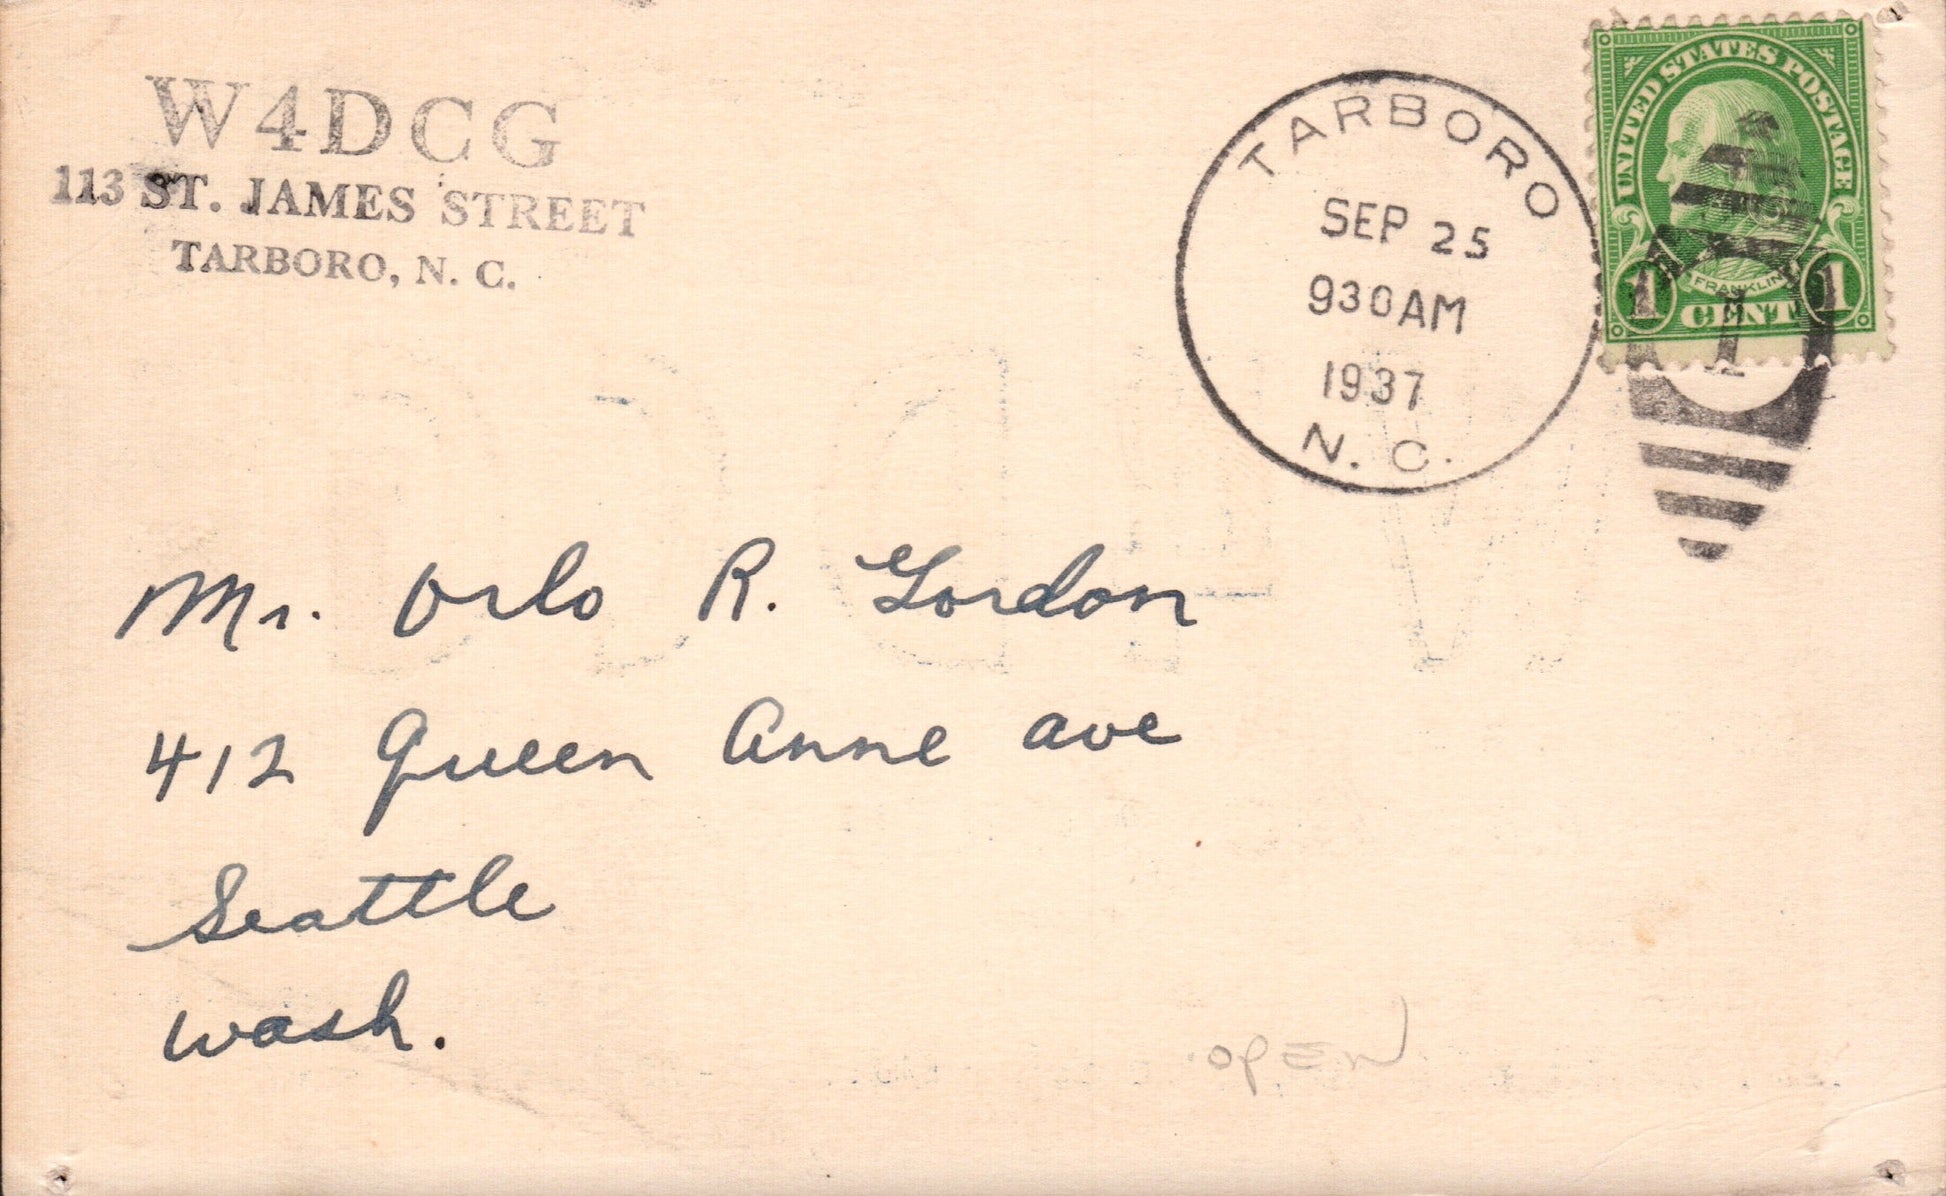 W4DCG
113 ST. JAMES STREET
TARBORO, N. C.
TARBORO
SEP 25
930AM
1937
N. C.
UNITED STATES POSTAGE
FRANKLIN
1 CENT 1
1
Mr. Orlo R. Gordon
412 Queen Anne ave
Seattle
Wash.
OPEN